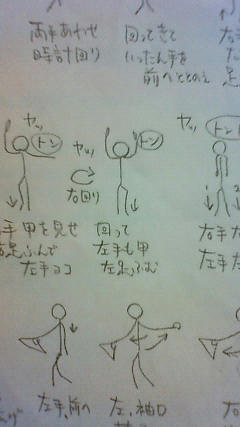 両手あわせ
時計回り
回ってきて
いったん手を
前へととのえ
右手
左
足
ヤッ
トン
ヤッ
トン
右回り
ヤッ
トン
手甲を見せ
右足ふんで
左手ヨコ
回って
左手も甲
左足ふむ
右手
左手
左手、前へ
左、袖口
右